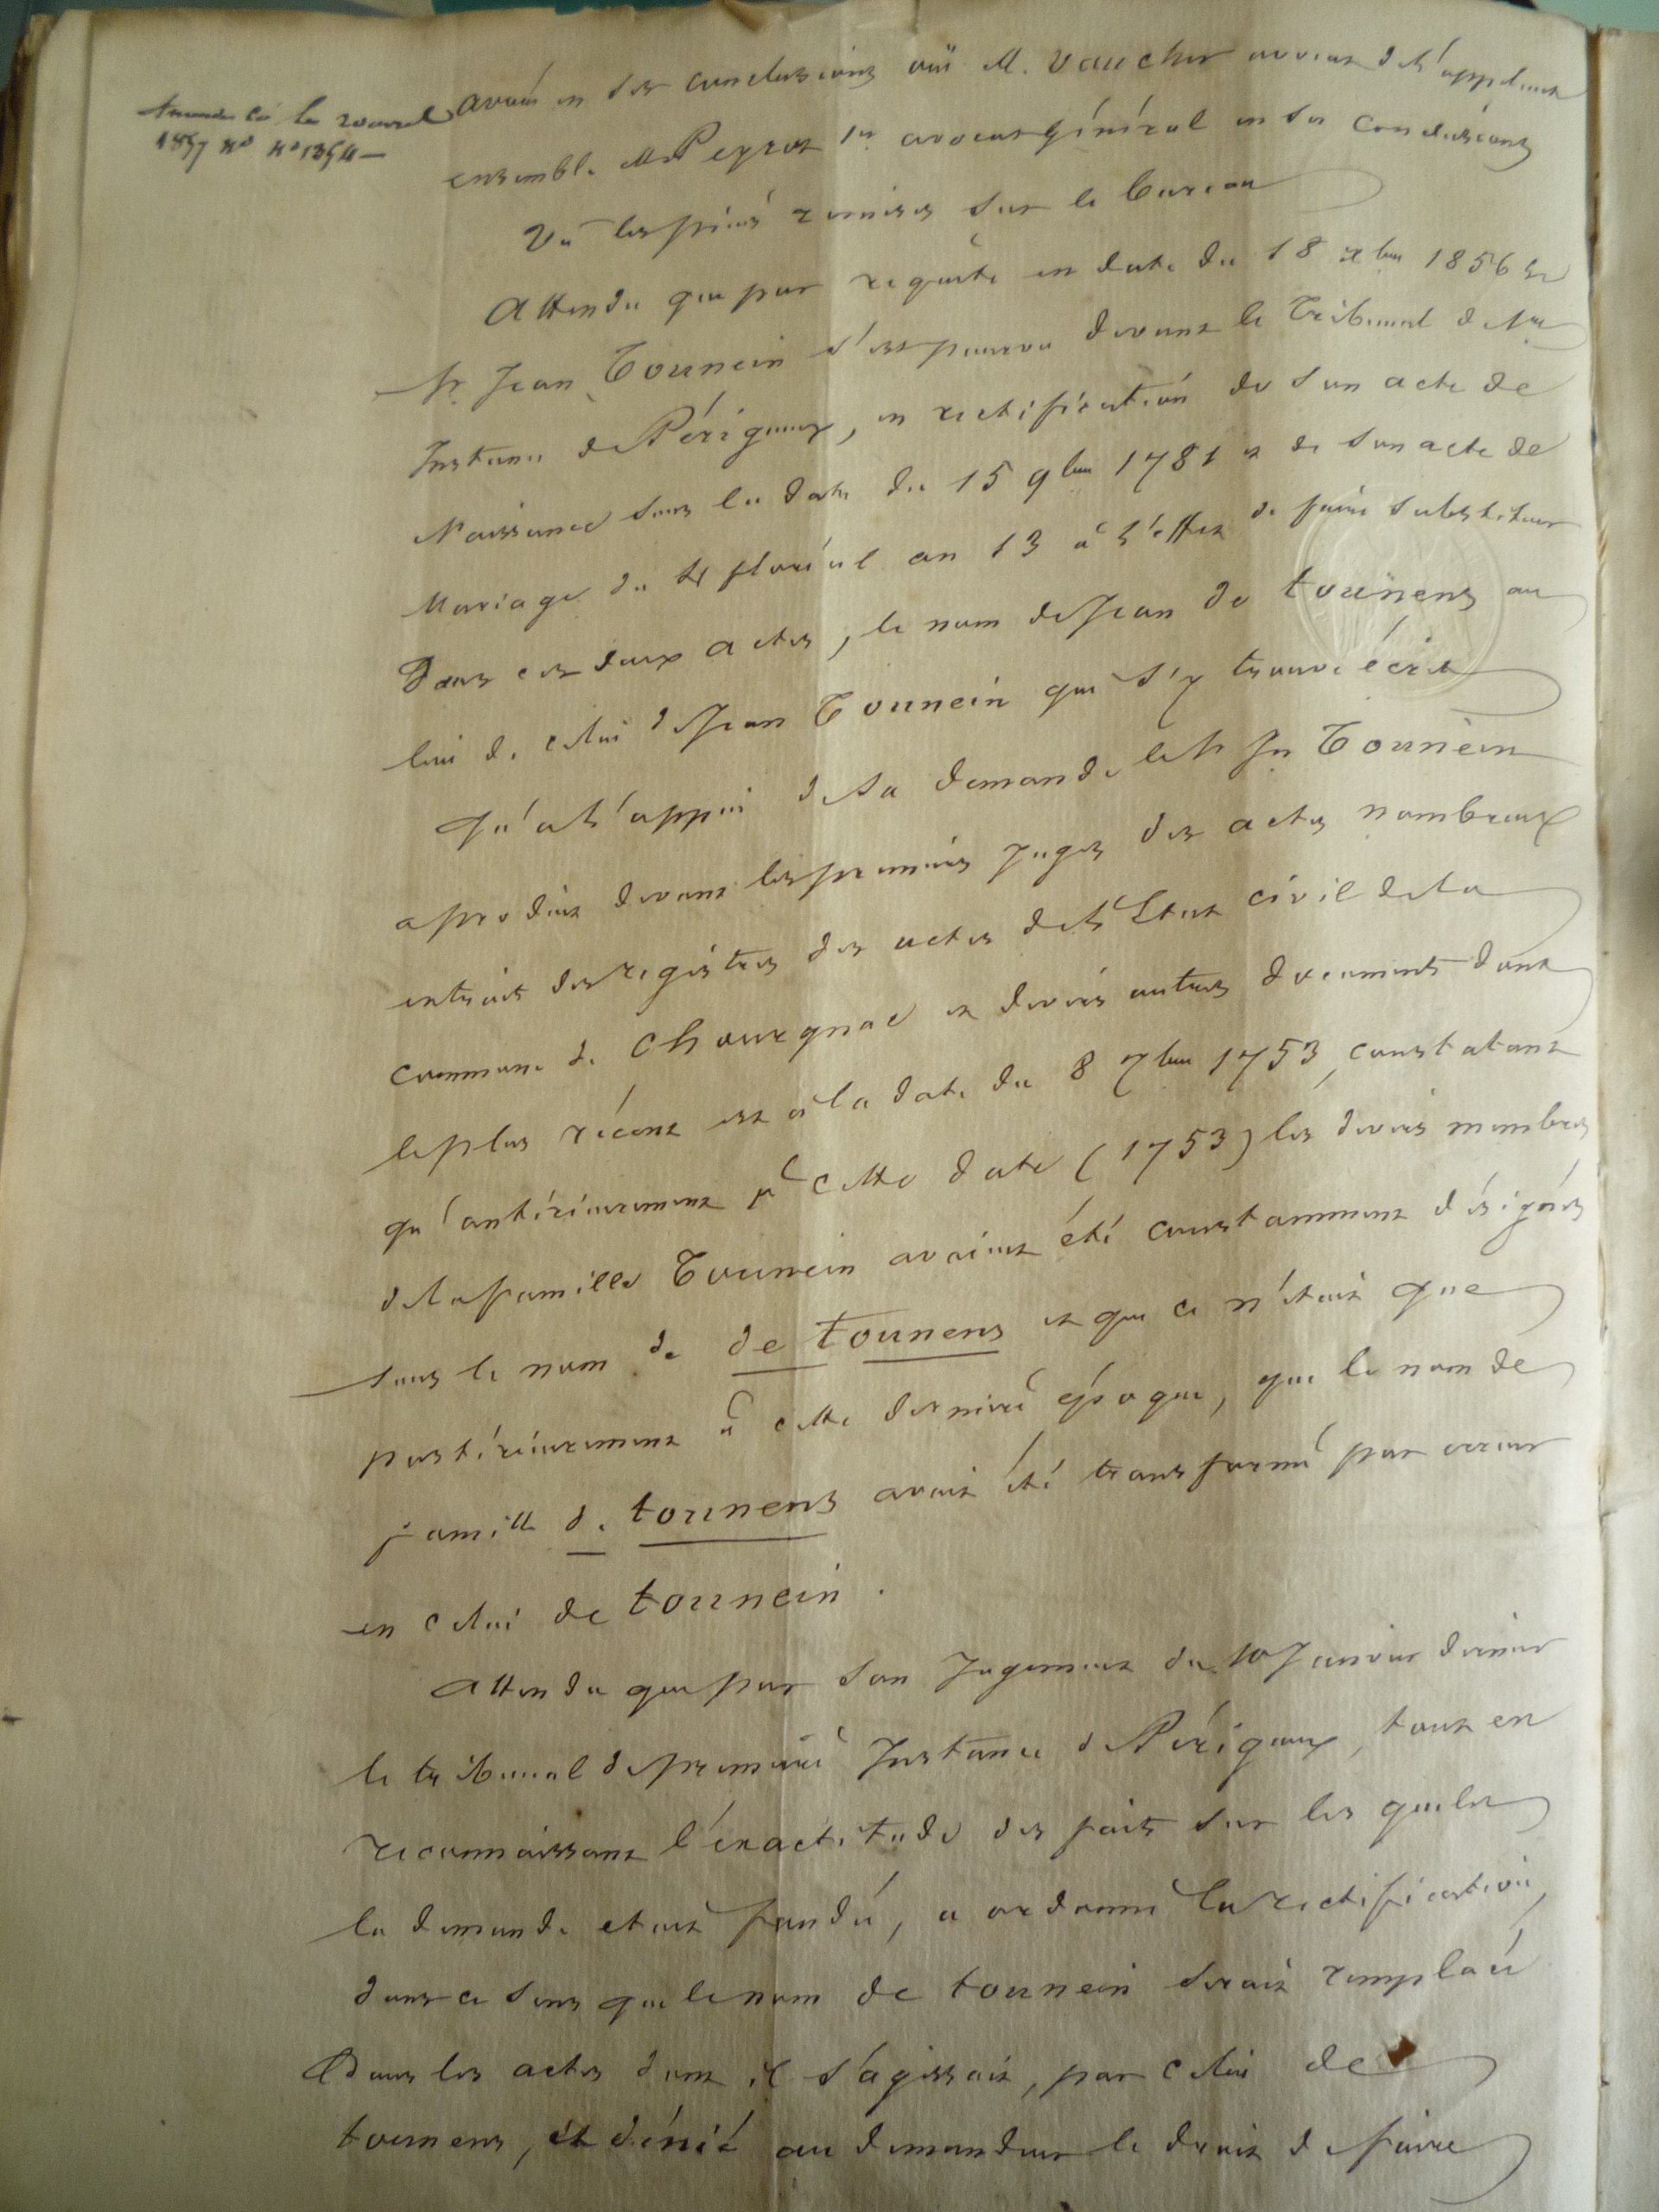 avoué en ses conclusions ouï M. Vaucher avocat de l'appelant
1857 N°
ensemble M. Peyrot 1er avocat général en ses conclusions
Vu les pièces remises sur le bureau
Attendu que par requête en date du 18 xbre 1856 le
Sr. Jean Tounein s'est pourvu devant le Tribunal de 1re
Instance de Périgueux, en rectification de son acte de
Naissance sous la date du 15 9bre 1781 et de son acte de
Mariage du floréal an 13 à l'effet de faire substituer
Dans ces deux actes, le nom de Jean de tounens au
lieu de celui de Jean Tounein qui s'y trouve écrit
Qu'a l'appui de sa demande le Sr Jn Tounein
a produit devant les premiers Juges des actes nombreux
extraits des registres des actes de l'Etat civil de la
commune de Chourgnac et divers autres documents dont
le plus récent est à la date du 8 7bre 1753, constatant
qu'antérieurement à cette date (1753) les divers membres
de la famille Tounein avaient été constamment désignés
sous le nom de de tounens et que ce n'était que
postérieurement à cette dernière époque, que le nom de
famille de tounens avait été transformé par erreur
en celui de tounein.
Attendu que par son Jugement du 10 Janvier dernier
le tribunal de première Instance de Périgueux, tout en
reconnaissant l'exactitude des faits sur les quels
la demande etait fondée, a ordonné la rectification,
dans ce sens que le nom de tounein serait remplacé
Dans les actes dont il s'agissait, par celui de
tounens, et dénié au demandeur le droit de faire